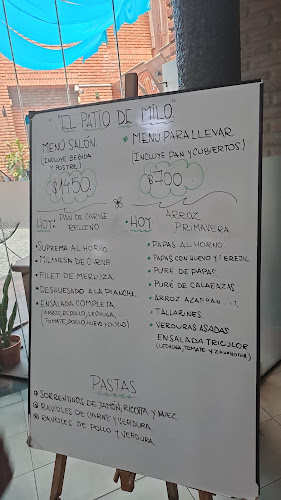 "EL PATIO DE MILO"
MENÚ SALÓN.
(INCLUYE BEBIDA
Y POSTRE)
$1450.
HOY: PAN DE CARNE
RELLENO
• SUPREMA AL HORNO.
• MILANESA DE CARNE
• FILET DE MERLUZA.
• DESHUESADO A LA PLANCHA.
• ENSALADA COMPLETA
(ARROZ, REPOLLO, LECHUGA,
TOMATE, POLLO, HUEVO Y CHOCLO)
• MENÚ PARA LLEVAR
(INCLUYE PAN Y CUBIERTOS)
$700
• HOY ARROZ
PRIMAVERA
• PAPAS AL HORNO.
• PAPAS CON HUEVO Y PEREJIL
• PURÉ DE PAPAS.
• PURÉ DE CALABAZAS
• ARROZ AZAFRAN
• TALLARINES.
• VERDURAS ASADAS
ENSALADA TRICOLOR
(LECHUGA, TOMATE Y ZANAHORIA)
PASTAS
SORRENTINOS DE JAMÓN, RICOTA Y NUEZ
RAVIOLES DE CARNE Y VERDURA
RAVIOLES DE POLLO Y VERDURA